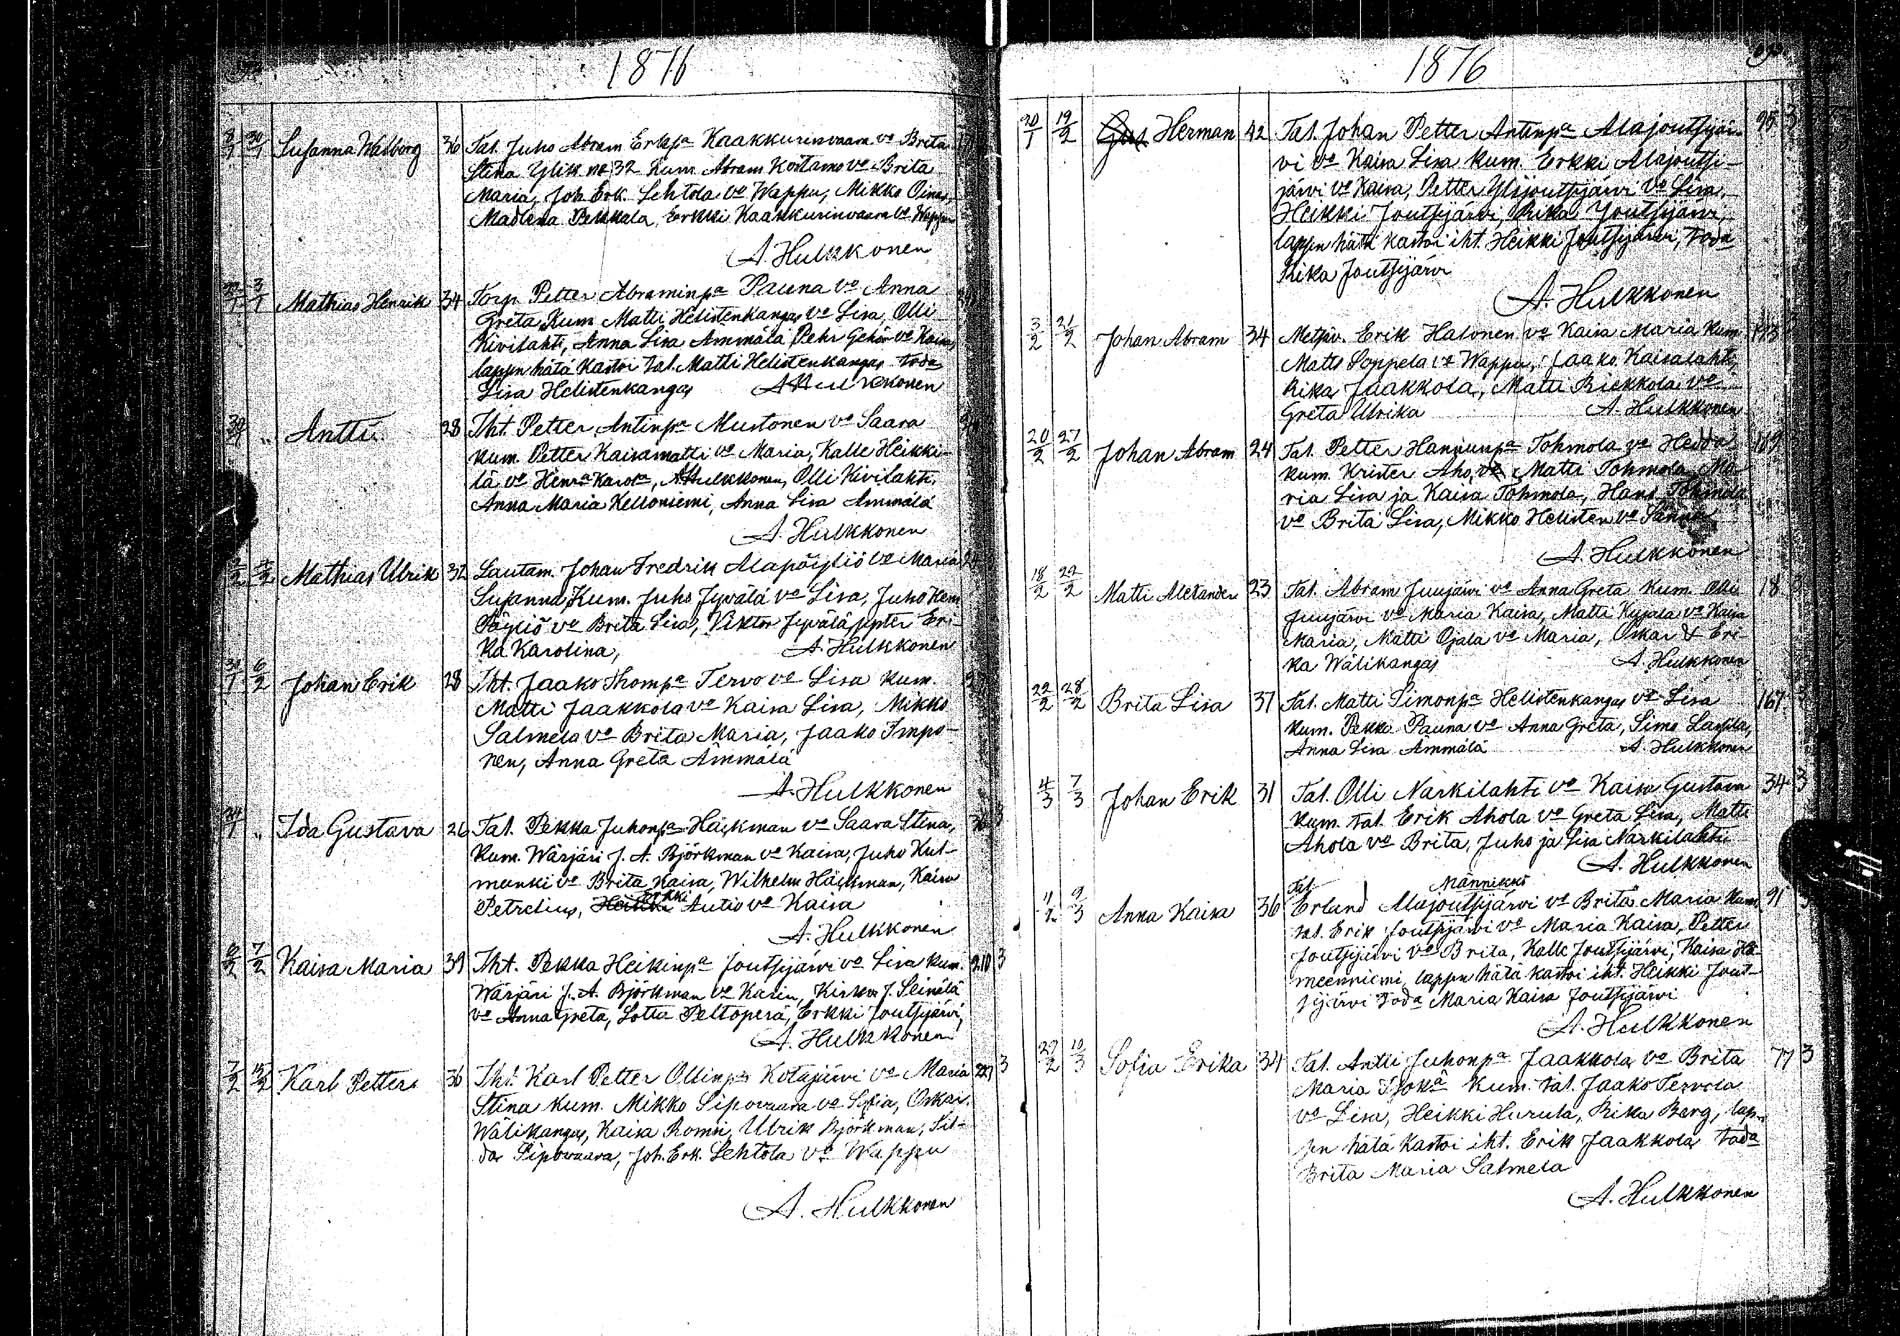 1876
8/1 30/1 Susanna Walborg 36 Tal. Juho Abram Erkinpa Kaakkurinvaara va Brita
Stina Ylik no 32 Kum. Abram Koitamo va Brita
Maria, Joh. Erk. Lehtola va Wappu, Mikko Oina,
Madlena Pekkala, Erkki Kaakkurinvaara va Wappu
A. Hulkkonen
Mathias Henrik 34 Torp. Petter Abraminpa Pauna va Anna
Greta, Kum. Matti Helistenkangas va Lisa, Olli
Kivilahti, Anna Lisa Ämmälä, Pehr Gehör va Kaisa,
lapsen hätä kastoi tal. Matti Helistenkangas toda
Lisa Helistenkangas A. Hulkkonen
30/1 „ Antti 28 Iht. Petter Antinpa Mustonen va Saara
kum. Petter Kaisamatti va Maria, Kalle Heikki-
lä va Henra Karola, A. Hulkkonen, Olli Kivilahti,
Anna Maria Kelloniemi, Anna Lisa Ämmälä
A. Hulkkonen
Mathias Ulrik 32 Lautam. Johan Fredrik Alapöyliö va Maria
Susanna Kum. Juho Jyvälä va Lisa, Juho Kem
Pöyliö va Brita Lisa, Viktor Jyvälä, Eri-
ka Karolina, A. Hulkkonen
31/1 6/2 Johan Erik 28 Iht. Jaako Thompa Tervo va Lisa kum.
Matti Jaakkola va Kaisa Lisa, Mikko
Salmela va Brita Maria, Jaako Impo-
nen, Anna Greta Ämmälä
A. Hulkkonen
24/1 „ Ida Gustava 26 Tal. Pekka Juhonpa Häckman va Saara Stina, 36 3
kum. Wärjäri J. A. Björkman va Kaisa, Juho Kul-
meunki va Brita Kaisa, Wilhelm Häckman, Kaisa
Petrelius, Erkki Autio va Kaisa
A. Hulkkonen
6/2 7/2 Kaisa Maria 39 Iht. Pekka Heikinpa Joutsijärvi va Lisa kum. 210 3
Wärjäri J. A. Björkman va Karin, J. Seinälä
va Anna Greta, Lotta Peltoperä, Erkki Joutsijärvi,
A. Hulkkonen
7/2 13/2 Karl Petter 36 Iht. Karl Petter Ollinpa Kotajärvi va Maria 227 3
Stina kum. Mikko Sipovaara va Sofia, Oskar
Wälikangas, Kaisa Romsi, Ulrik Björkman, Sil-
da Sipovaara, Joh. Erk. Lehtola va Wappu
A. Hulkkonen
1876
20/1 19/2 Herman 42 Tal. Johan Petter Antinpa Alajoutsijär- 95 3
vi va Kaisa Lisa kum. Erkki Alajoutsi-
järvi va Kaisa, Petter Ylijoutsijärvi va Lisa,
Heikki Joutsijärvi, Rika Joutsijärvi,
lapsen hätä kastoi iht. Heikki Joutsijärvi, toda
Rika Joutsijärvi
A. Hulkkonen
3/2 21/2 Johan Abram 34 Metsäv. Erik Halonen va Kaisa Maria kum.
Matts Poppela va Wappu, Jaako Kaisalahti,
Rika Jaakkola, Matti Riekkola va
Greta Ulrika A. Hulkkonen
20/2 27/2 Johan Abram 24 Tal. Petter Hannunpa Tohmola va Hedda 119 3
kum. Krister Aho, Matti Tohmola, Ma-
ria Lisa ja Kaisa Tohmola, Hans Tohmola
va Brita Lisa, Mikko Helisten va Sanna
A. Hulkkonen
18/2 22/2 Matti Alexander 23 Tal. Abram Juujärvi va Anna Greta Kum. Olli 18 3
Juujärvi va Maria Kaisa, Matti Kujala va Kaisa
Maria, Matti Ojala va Maria, Oskar & Eri-
ka Wälikangas A. Hulkkonen
22/2 28/2 Brita Lisa 37 Tal. Matti Simonpa Helistenkangas va Lisa 167 3
kum. Pekka Pauna va Anna Greta, Simo Laurila,
Anna Lisa Ämmälä A. Hulkkonen
4/3 7/3 Johan Erik 31 Tal. Olli Narkilahti va Kaisa Gustava 34 3
kum. tal. Erik Ahola va Greta Lisa, Matti
Ahola va Brita, Juho ja Lisa Narkilahti
A. Hulkkonen
Tal. Männikkö
9/3 Anna Kaisa 36 Erland Alajoutsijärvi va Brita Maria kum. 91 3
tal. Erik Joutsijärvi va Maria Kaisa, Petter
Joutsijärvi va Brita, Kalle Joutsijärvi, Kaisa Hä-
meenniemi, lapsen hätä kastoi iht. Heikki Jout-
sijärvi toda Maria Kaisa Joutsijärvi
A. Hulkkonen
29/2 10/3 Sofia Erika 34 Tal. Antti Juhonpa Jaakkola va Brita 77 3
Maria kum. tal. Jaako Tervola
va Lisa, Heikki Hurula, Rika Berg, lap-
sen hätä kastoi iht. Erik Jaakkola toda
Brita Maria Salmela
A. Hulkkonen